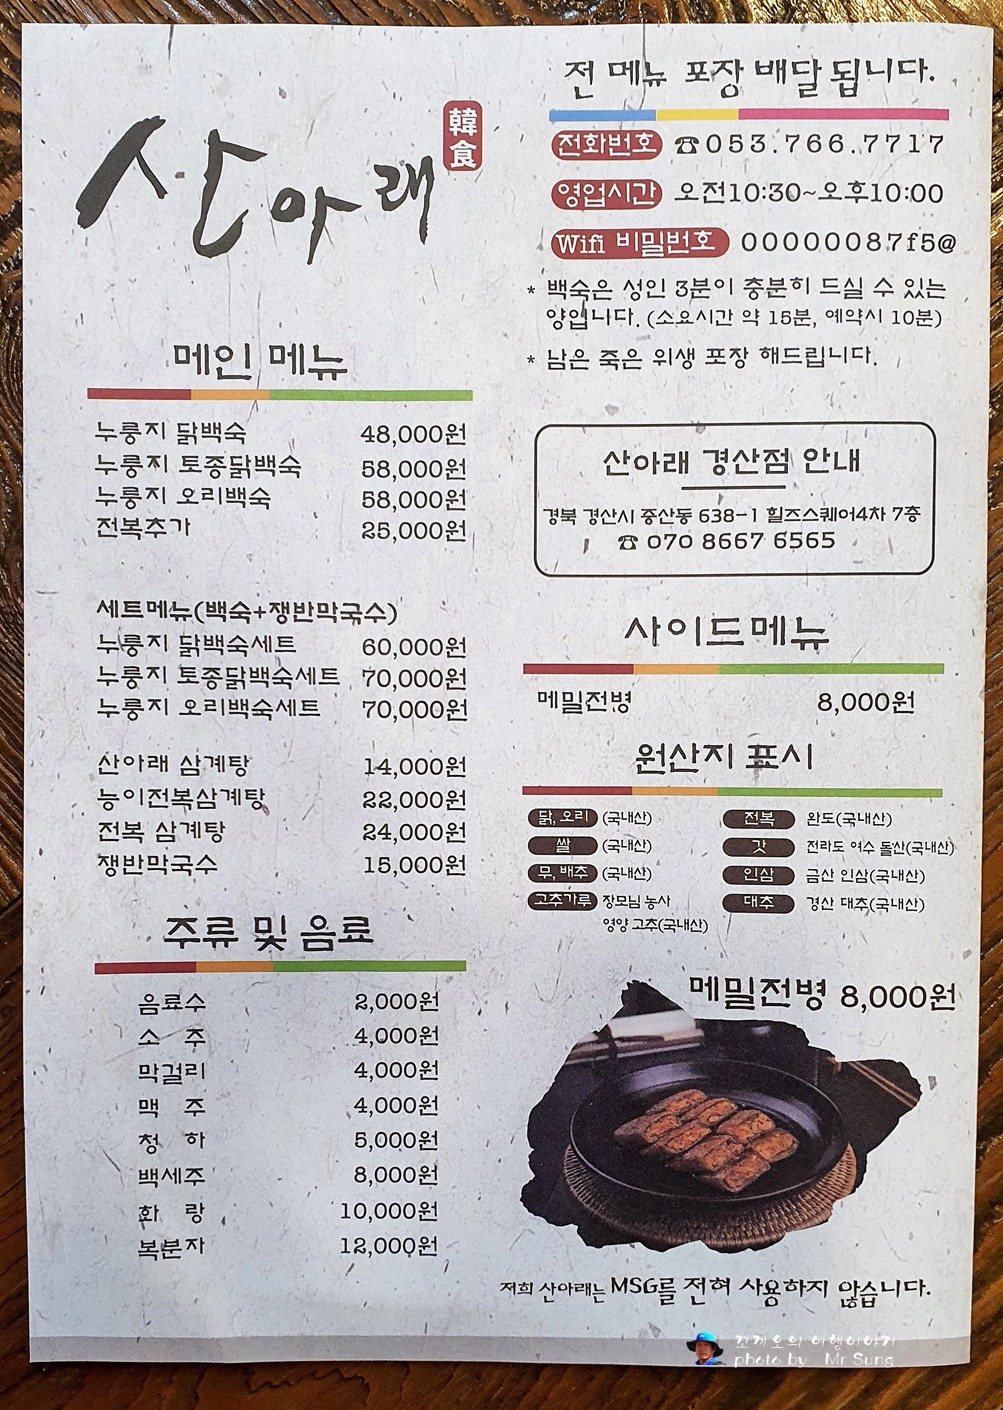 산아래
韓食
메인 메뉴
누룽지 닭백숙 48,000원
누룽지 토종닭백숙 58,000원
누룽지 오리백숙 58,000원
전복추가 25,000원
세트메뉴(백숙+쟁반막국수)
누룽지 닭백숙세트 60,000원
누룽지 토종닭백숙세트 70,000원
누룽지 오리백숙세트 70,000원
산아래 삼계탕 14,000원
능이전복삼계탕 22,000원
전복 삼계탕 24,000원
쟁반막국수 15,000원
주류 및 음료
음료수 2,000원
소 주 4,000원
막걸리 4,000원
맥 주 4,000원
청 하 5,000원
백세주 8,000원
화 랑 10,000원
복분자 12,000원
전 메뉴 포장 배달 됩니다.
전화번호 ☎053.766.7717
영업시간 오전10:30~오후10:00
Wifi 비밀번호 00000087f5@
* 백숙은 성인 3분이 충분히 드실 수 있는
양입니다. (소요시간 약 15분, 예약시 10분)
* 남은 죽은 위생 포장 해드립니다.
산아래 경산점 안내
경북 경산시 중산동 638-1 힐즈스퀘어4차 7층
☎ 070 8667 6565
사이드메뉴
메밀전병 8,000원
원산지 표시
닭, 오리 (국내산) 전복 완도(국내산)
쌀 (국내산) 갓 전라도 여수 돌산(국내산)
무, 배추 (국내산) 인삼 금산 인삼(국내산)
고추가루 장모님 농사 대추 경산 대추(국내산)
영양 고추(국내산)
메밀전병 8,000원
저희 산아래는 MSG를 전혀 사용하지 않습니다.
꼬게오의 여행이야기
photo by Mr Sung